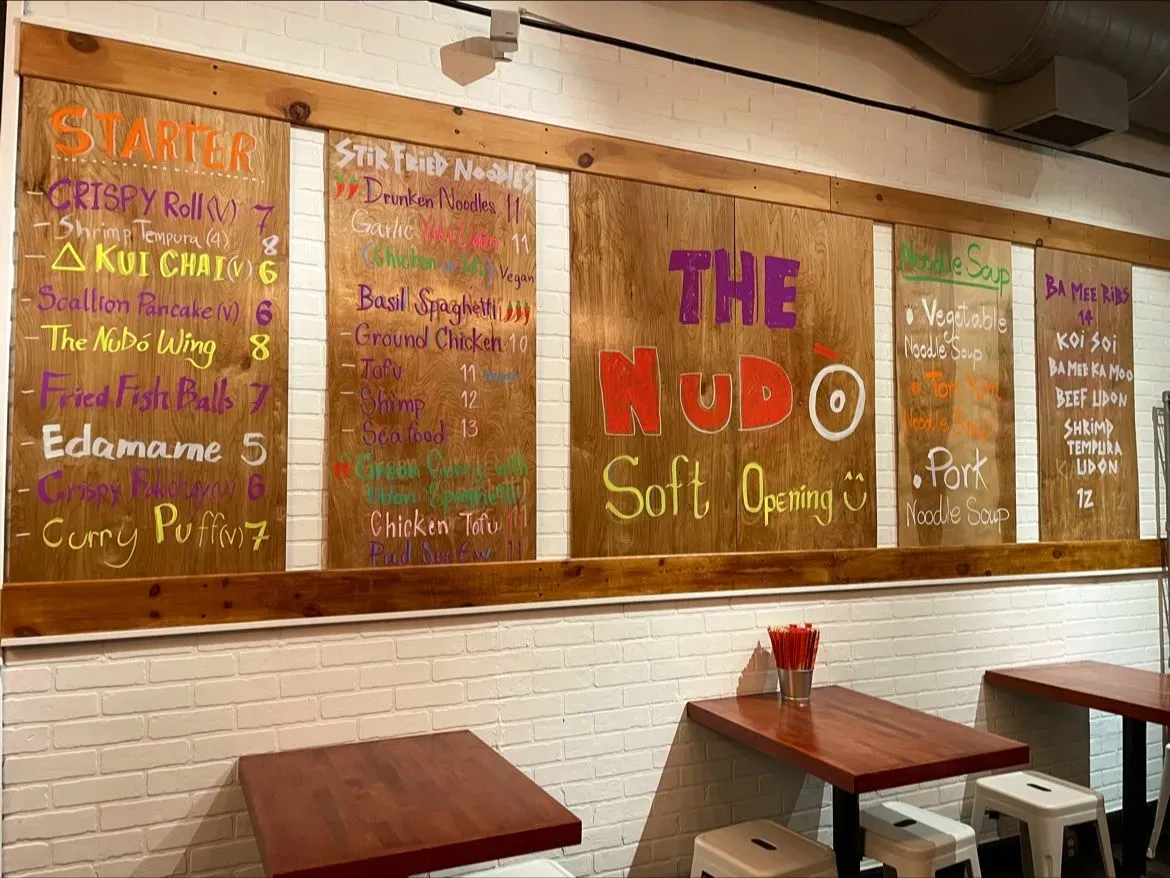 STARTER
- CRISPY Roll (V) 7
- Shrimp Tempura (4) 8
- △ KUI CHAI (V) 6
- Scallion Pancake (V) 6
- The NuDó Wing 8
- Fried Fish Balls 7
Edamame 5
- Crispy (V) 6
- Curry Puff (V) 7
STIR FRIED NOODLES
Drunken Noodles 11
Garlic Yaki Udon 11
(Chicken or Tofu) Vegan
Basil Spaghetti
- Ground Chicken 10
- Tofu 11
- Shimp 12
- Seafood 13
Green Curry with
Udon Spaghetti
Chicken Tofu 11
Pad See Ew 11
THE
NUDÒ
Soft Opening
Noodle Soup
• Vegetable
Noodle Soup
Tom Yum
Noodle Soup
• Pork
Noodle Soup
BA MEE RIBS
14
KOI SOI
BA MEE KA MOO
BEEF UDON
SHRIMP
TEMPURA
UDON
12